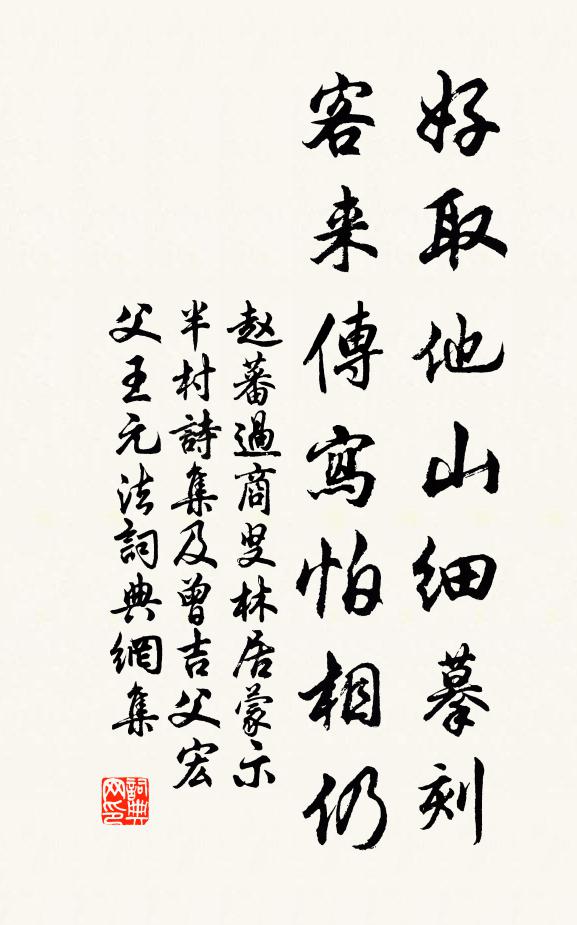 好取他山细摹刻
客来傳寫怕相仍
赵蕃過商叟林居蒙示
半村詩集及曾吉父宏
父王元法詞典網集
詞典网印